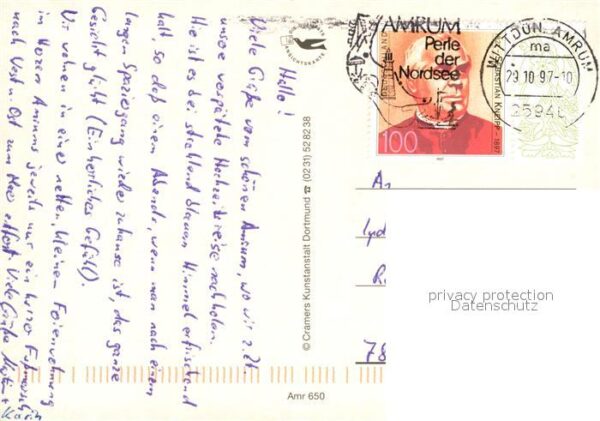 Hallo!
Viele Grüße vom schönen Amrum, wo wir z.Zt.
unsere verspätete Hochzeitsreise nachholen.
Hier ist es bei strahlend blauem Himmel erfrischend
kalt so daß einem Abends, wenn man nach einem
langen Spaziergang wieder zuhause ist, das ganze
Gesicht glüht (Ein herrliches Gefühl).
Wir wohnen in einer netten, kleinen Ferienwohnung
im Herzen Amrums jeweils nur ein kurzer Fußmarsch
nach West u. Ost zum Meer entfernt. Viele Grüße
Karin
ANSICHTSKARTE
© Cramers Kunstanstalt Dortmund ☎ (0231) 52 82 38
Amr 650
AMRUM
Perle
der
Nordsee
SEBASTIAN KNEIPP · 1897
100
1997
WITTDÜN, AMRUM
ma
29.10.97-10
25946
An
78
privacy protection
Datenschutz